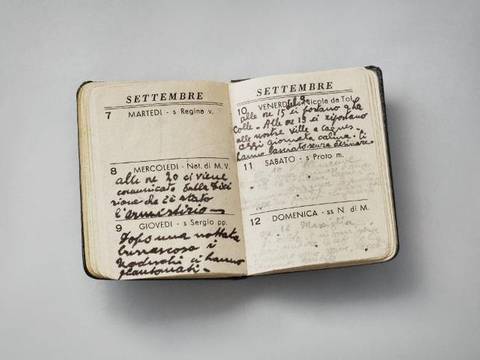 SETTEMBRE
7 MARTEDI - s Regina v.
8 MERCOLEDI - Nat. di M. V.
alle ore 20 ci viene
comunicato dalla
che c'è stato
l'armistizio
9 GIOVEDI - s Sergio pp.
Dopo una nottata
burrascosa i
tedeschi ci hanno
SETTEMBRE
10 VENERDI - s Nicola da Tol.
alle ore 15 ci portano
Colle. Alle ore 19 ci riportano
alle nostre ville a
oggi giornata calma. Ci
hanno lasciato senza
11 SABATO - s Proto m.
12 DOMENICA - ss N di M.